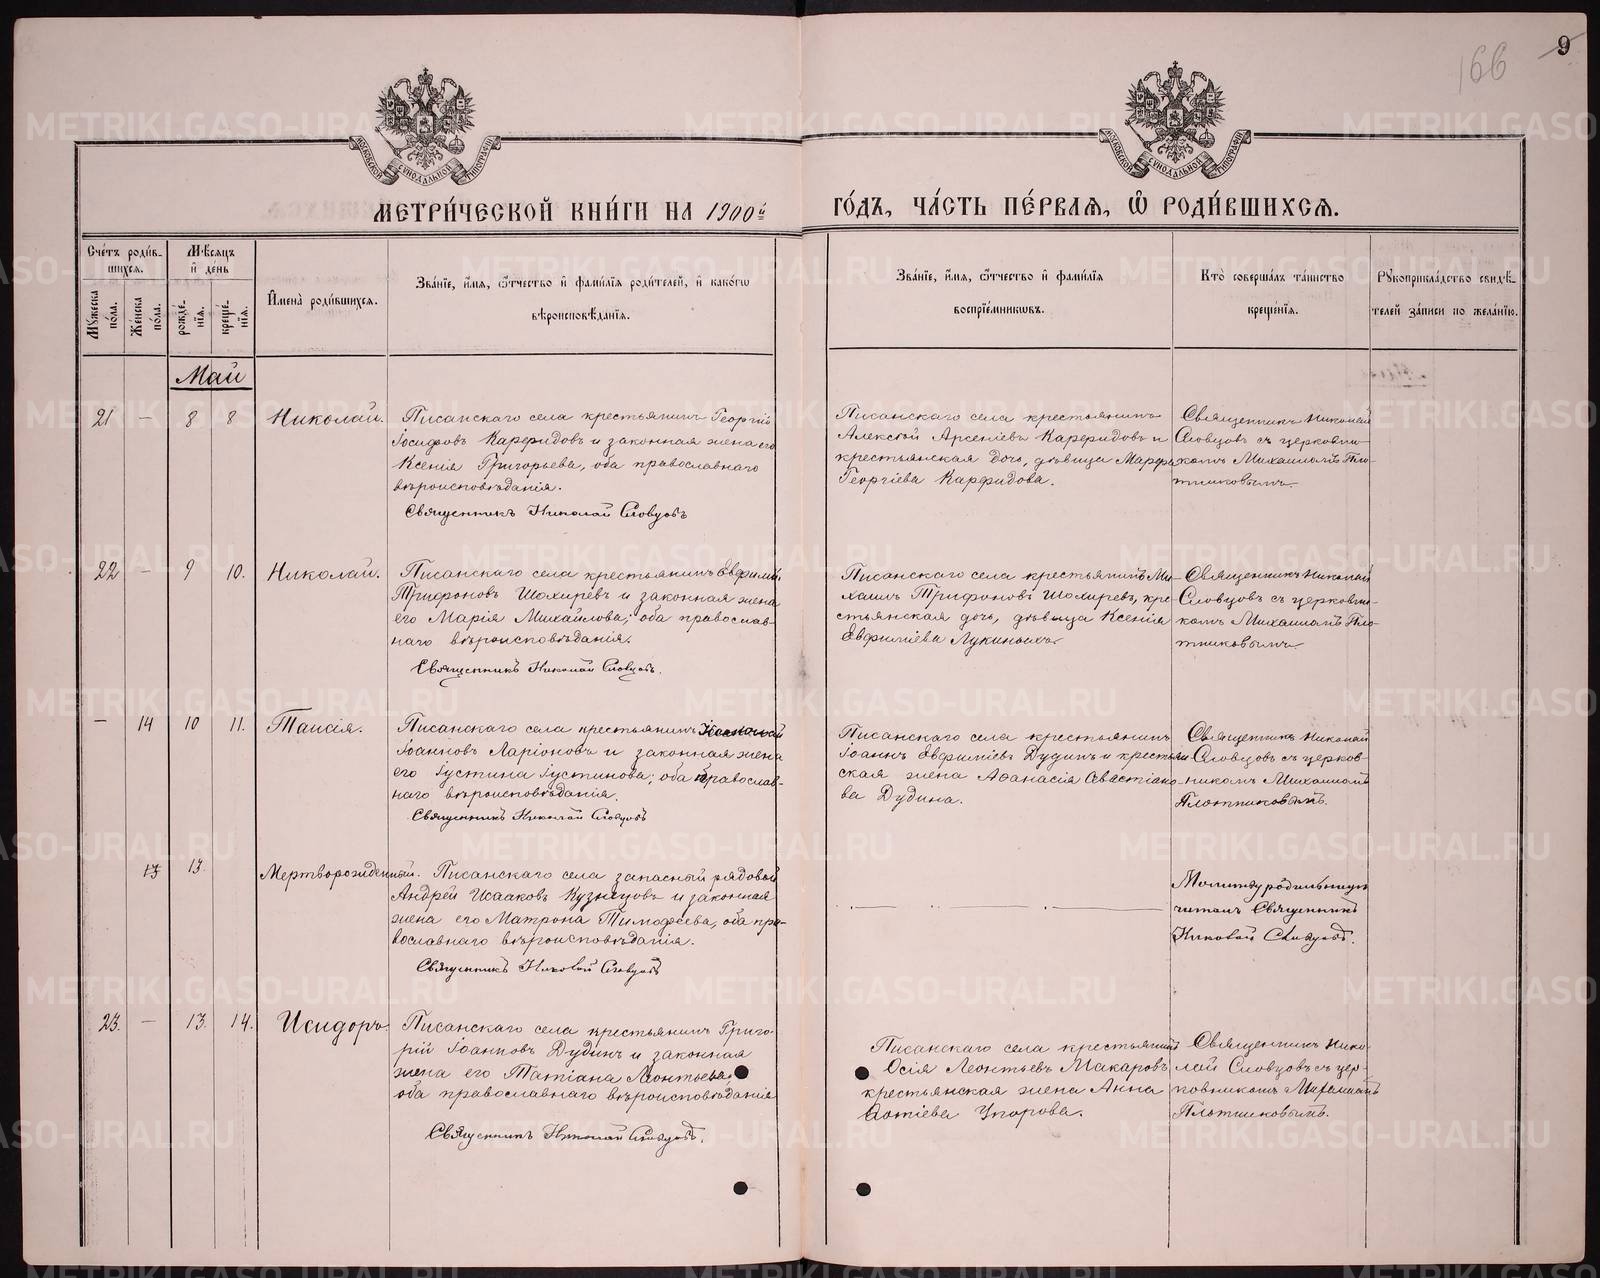 166 9
МЕТРИ́ЧЕСКОЙ КНИ́ГИ НА 1900й ГО́ДЪ, ЧА́СТЬ ПЕ́РВАѦ, Ѽ РОДИ́ВШИХСѦ.
Сче́тъ роди́в-
шихсѧ.
Мѣ́сѧцъ
и҆ день
Мꙋ́жеска по́ла.
Же́нска по́ла.
рожде́-
нїѧ.
креще́-
нїѧ.
И҆мена̀ роди́вшихсѧ.
Зва́нїе, и҆́мѧ, ѻ҆́тчество и҆ фами́лїѧ роди́телей, и҆ како́гѡ
вѣроисповѣ́данїѧ.
Зва́нїе, и҆́мѧ, ѻ҆́тчество и҆ фами́лїѧ
воспрїе́мникѡвъ.
Кто̀ соверша́лъ та́инство
креще́нїѧ.
Рꙋкоприкла́дство свидѣ́-
телей за́писи по жела́нїю.
Май
21 — 8 8 Николай.
Писанскаго села крестьянинъ Георгій
Іосифовъ Карфидовъ и законная жена его
Ксенія Григорьева, оба православнаго
вѣроисповѣданія.
Священникъ Николай Словцовъ
Писанскаго села крестьянинъ
Алексѣй Арсеніевъ Карфидовъ и
крестьянская дочь, дѣвица Марфа
Георгіева Карфидова.
Священникъ Николай
Словцовъ съ церковни-
комъ Михаиломъ Пло-
тниковымъ.
22 — 9 10. Николай.
Писанскаго села крестьянинъ Евфимій
Трифоновъ Шохиревъ и законная жена
его Марія Михайлова; оба православ-
наго вѣроисповѣданія.
Священникъ Николай Словцовъ.
Писанскаго села крестьянинъ Ми-
хаилъ Трифоновъ Шохиревъ, кре-
стьянская дочь, дѣвица Ксенія
Евфиміева Лукиныхъ.
Священникъ Николай
Словцовъ съ церковни-
комъ Михаиломъ Пло-
тниковымъ.
— 14 10 11. Таисія.
Писанскаго села крестьянинъ
Іоанновъ Ларіоновъ и законная жена
его Іустина Іустинова; оба православ-
наго вѣроисповѣданія.
Священникъ Николай Словцовъ
Писанскаго села крестьянинъ
Іоаннъ Евфиміевъ Дудинъ и крестьян-
ская жена Аѳанасія Савастіано-
ва Дудина.
Священникъ Николай
Словцовъ съ церков-
никомъ Михаиломъ
Плотниковымъ.
13. Мертворожденный.
Писанскаго села запасный рядовой
Андрей Исааковъ Кузнецовъ и законная
жена его Матрона Тимофеева, оба пра-
вославнаго вѣроисповѣданія.
Священникъ Николай Словцовъ
Молитву родильницѣ
читалъ Священникъ
Николай Словцовъ.
23. — 13. 14. Исидоръ
Писанскаго села крестьянинъ Григо-
рій Іоанновъ Дудинъ и законная
жена его Татіана Леонтьева,
оба православнаго вѣроисповѣданія
Священникъ Николай Словцовъ.
Писанскаго села крестьянинъ
Осія Леонтьевъ Макаровъ
крестьянская жена Анна
Фотіева Упорова.
Священникъ Нико-
лай Словцовъ съ цер-
ковникомъ Михаиломъ
Плотниковымъ.
METRIKI.GASO-URAL.RU